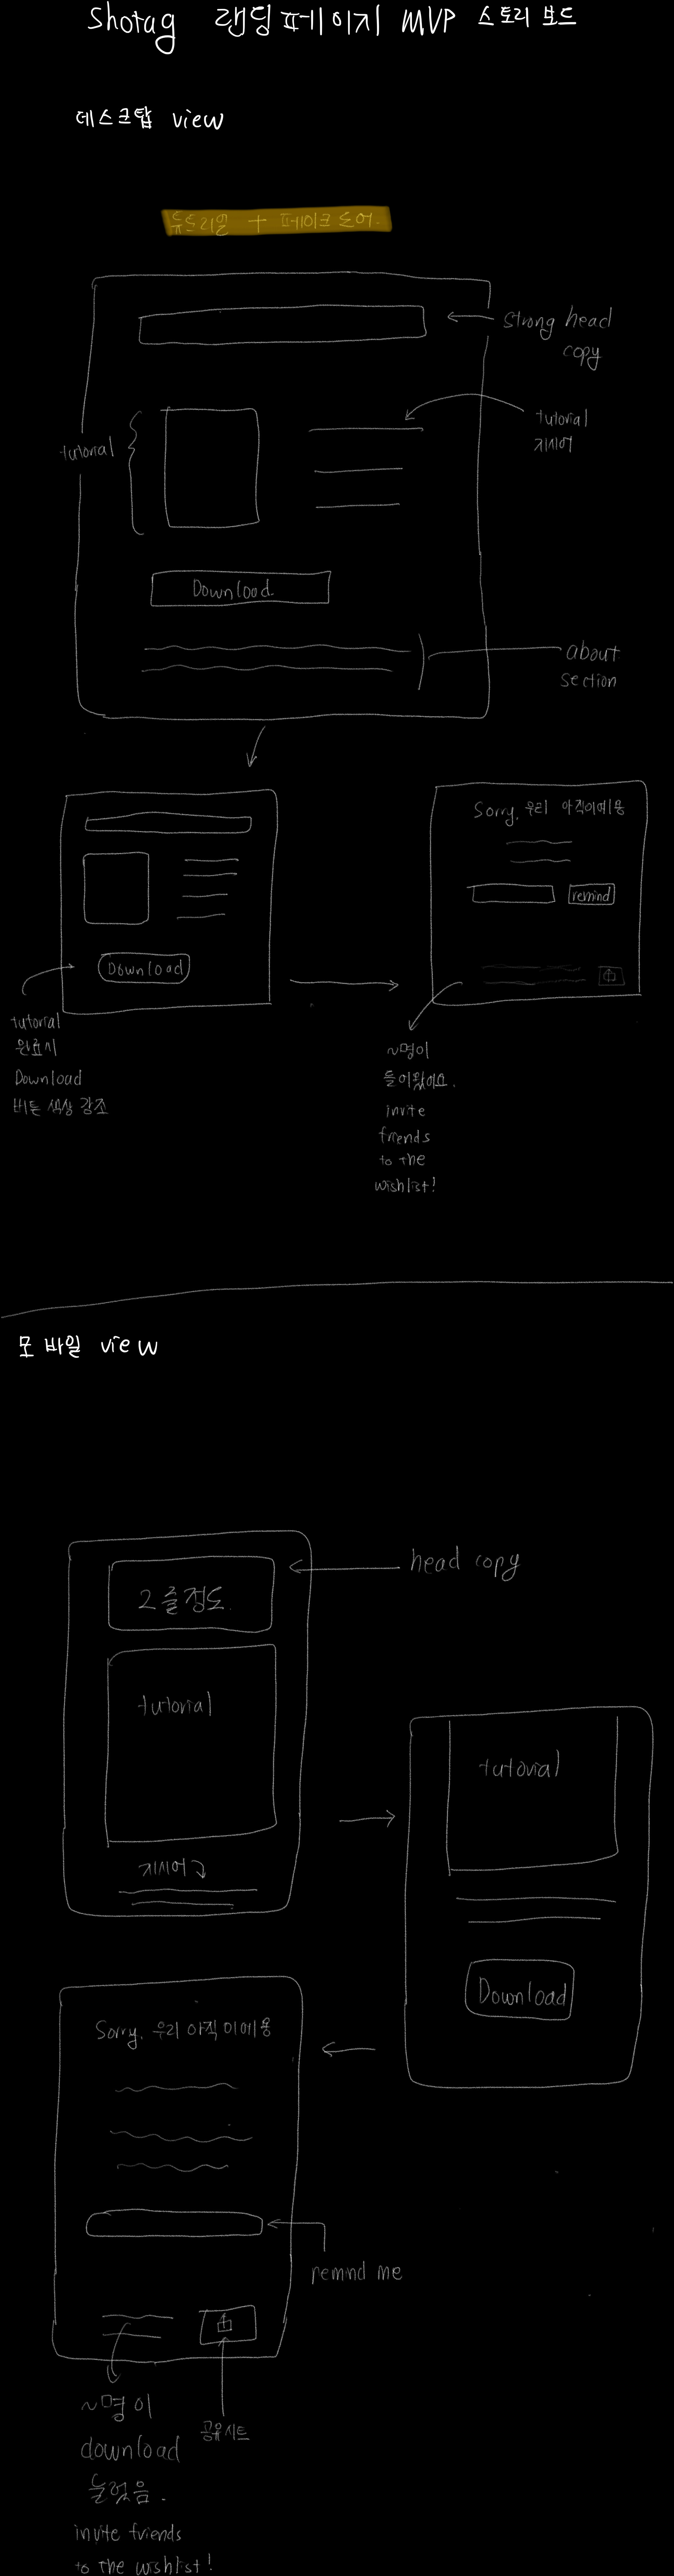 Shotag 랜딩페이지 MVP 스토리 보드
데스크탑 view
튜토리얼 + 페이크 도어.
strong head
copy
tutorial
지시어
tutorial
Download
about
section
Sorry, 우리 아직이에용
remind
Download
tutorial
완료시
Download
버튼 색상 강조
~명이
들어왔어요.
invite
friends
to the
wishlist!
모바일 view
head copy
2줄정도.
tutorial
지시어
tutorial
Download
Sorry, 우리 아직이에용
remind me
~명이
download
눌렀음.
공유시트
invite friends
to the wishlist!